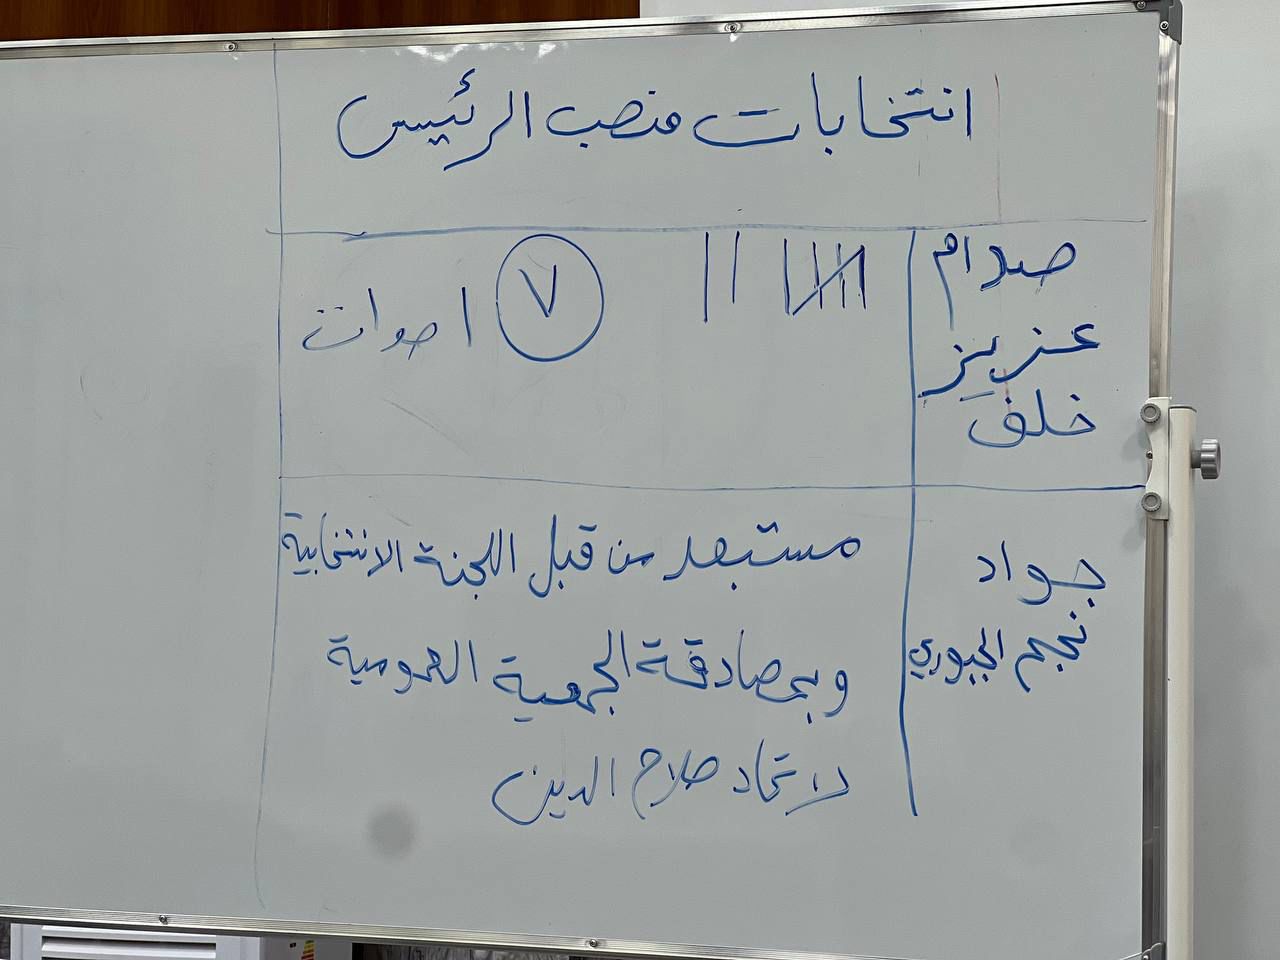 انتخابات منصب الرئيس
صدام
عزيز
خلف
٧ اصوات
جواد
نجم الجبوري
مستبعد من قبل اللجنة الانتخابية
وبمصادقة الجمعية العمومية
لاتحاد صلاح الدين